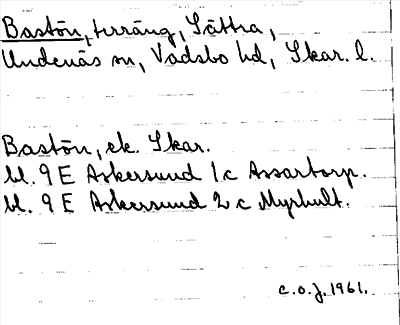 Bastön, terräng, Sättra,
Undenäs sn, Vadsbo hd, Skar. l.
Bastön, ek. Skar.
bl. 9 E Askersund 1 c Assartorp.
bl. 9 E Askersund 2 c Myrhult.
c.o.j. 1961.